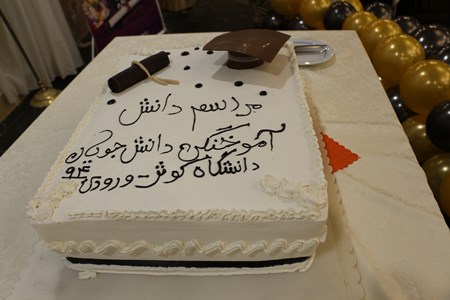 مراسم دانش
آموختگی دانش جویان
دانشگاه کوش-ورودی
94